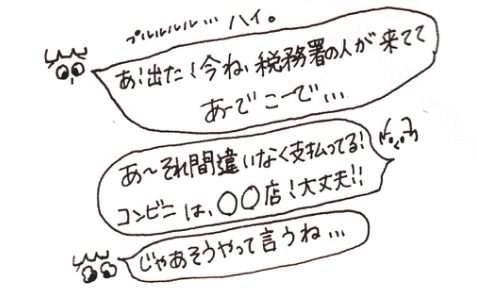 プルルルル… ハイ。
あ!出た!今ね、税務署の人が来てて
あーでこーで…
あ〜それ間違いなく支払ってる!
コンビニは、〇〇店!大丈夫!!
じゃあそうやって言うね…